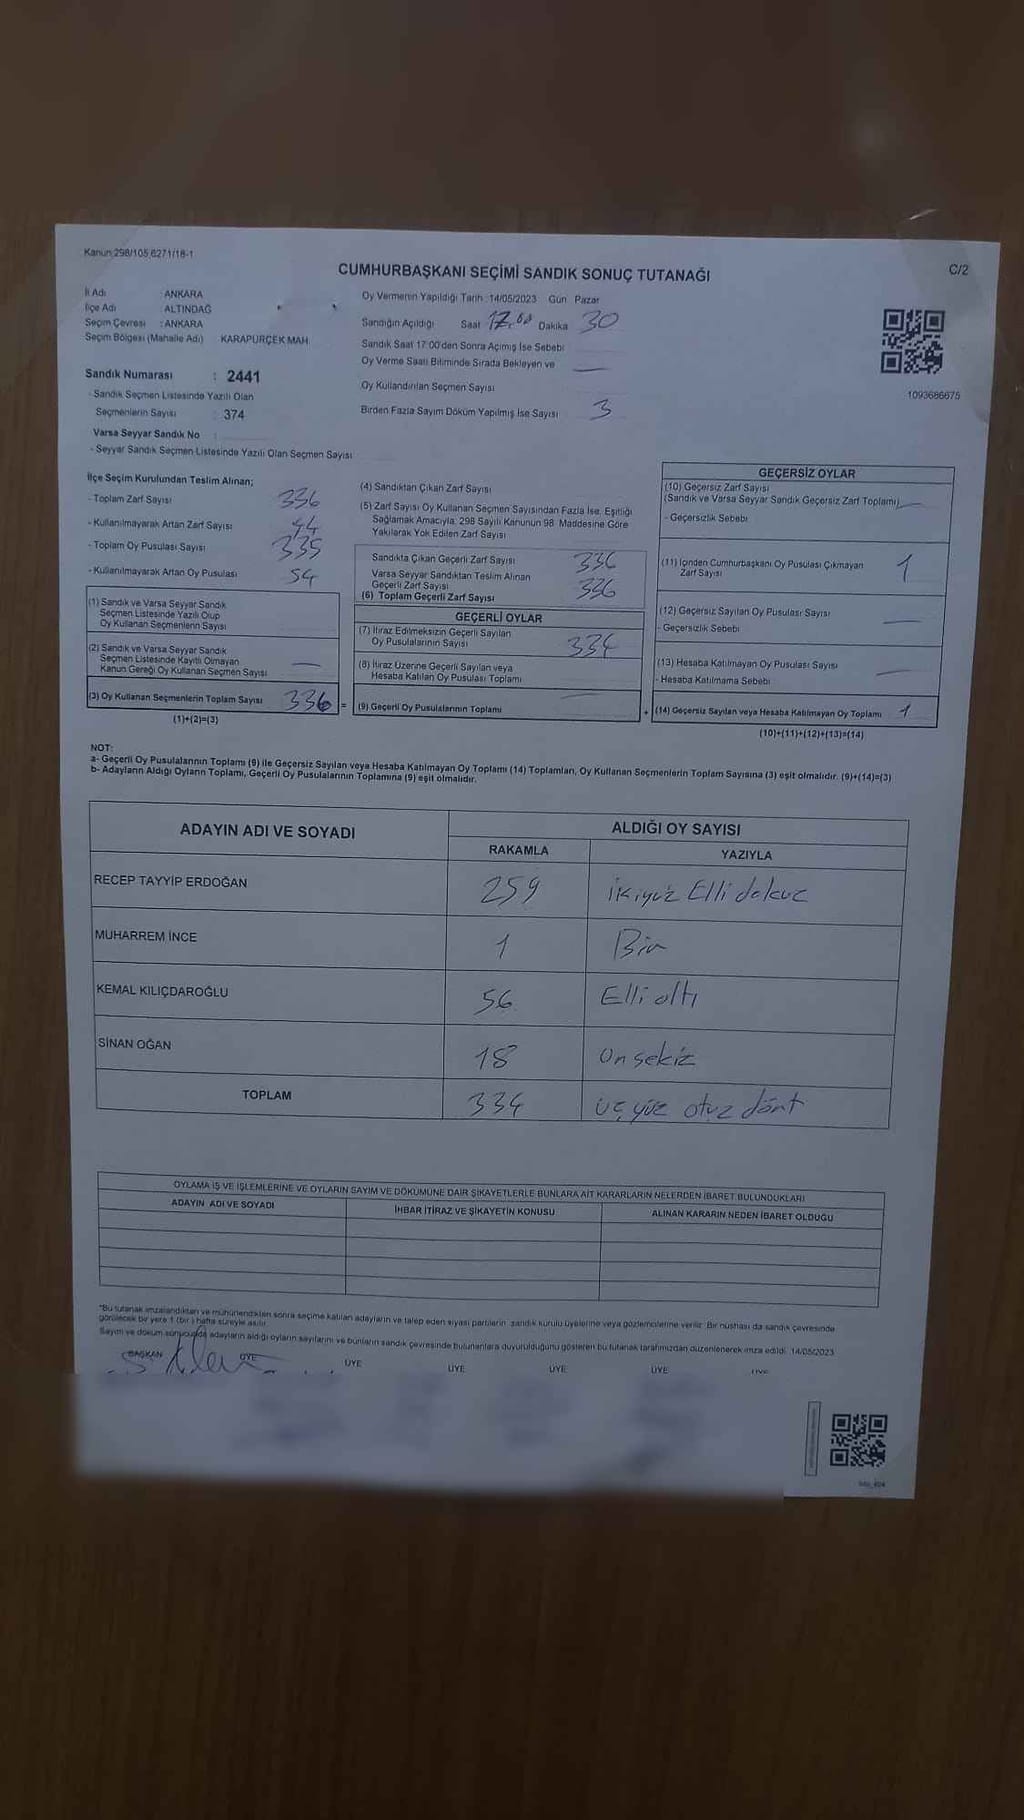 Kanun:298/105,6271/18-1
C/2
CUMHURBAŞKANI SEÇİMİ SANDIK SONUÇ TUTANAĞI
İl Adı : ANKARA
İlçe Adı : ALTINDAĞ
Seçim Çevresi : ANKARA
Seçim Bölgesi (Mahalle Adı) KARAPÜRÇEK MAH.
Sandık Numarası : 2441
- Sandık Seçmen Listesinde Yazılı Olan
Seçmenlerin Sayısı : 374
Varsa Seyyar Sandık No :
- Seyyar Sandık Seçmen Listesinde Yazılı Olan Seçmen Sayısı
Oy Vermenin Yapıldığı Tarih :14/05/2023 Gün Pazar
Sandığın Açıldığı Saat 17.00 Dakika 30
Sandık Saat 17:00'den Sonra Açılmış İse Sebebi
Oy Verme Saati Bitiminde Sırada Bekleyen ve
Oy Kullandırılan Seçmen Sayısı
Birden Fazla Sayım Döküm Yapılmış İse Sayısı 3
1093686675
İlçe Seçim Kurulundan Teslim Alınan;
- Toplam Zarf Sayısı 336
- Kullanılmayarak Artan Zarf Sayısı 44
- Toplam Oy Pusulası Sayısı 335
- Kullanılmayarak Artan Oy Pusulası 54
(1) Sandık ve Varsa Seyyar Sandık
Seçmen Listesinde Yazılı Olup
Oy Kullanan Seçmenlerin Sayısı
(2) Sandık ve Varsa Seyyar Sandık
Seçmen Listesinde Kayıtlı Olmayan
Kanun Gereği Oy Kullanan Seçmen Sayısı —
(3) Oy Kullanan Seçmenlerin Toplam Sayısı 336 =
(1)+(2)=(3)
(4) Sandıktan Çıkan Zarf Sayısı
(5) Zarf Sayısı Oy Kullanan Seçmen Sayısından Fazla İse, Eşitliği
Sağlamak Amacıyla, 298 Sayılı Kanunun 98. Maddesine Göre
Yakılarak Yok Edilen Zarf Sayısı
Sandıkta Çıkan Geçerli Zarf Sayısı 336
Varsa Seyyar Sandıktan Teslim Alınan
Geçerli Zarf Sayısı 336
(6) Toplam Geçerli Zarf Sayısı
GEÇERLİ OYLAR
(7) İtiraz Edilmeksizin Geçerli Sayılan
Oy Pusulalarının Sayısı 334
(8) İtiraz Üzerine Geçerli Sayılan veya
Hesaba Katılan Oy Pusulası Toplamı
(9) Geçerli Oy Pusulalarının Toplamı —
GEÇERSİZ OYLAR
(10) Geçersiz Zarf Sayısı
(Sandık ve Varsa Seyyar Sandık Geçersiz Zarf Toplamı) —
- Geçersizlik Sebebi
(11) İçinden Cumhurbaşkanı Oy Pusulası Çıkmayan
Zarf Sayısı 1
(12) Geçersiz Sayılan Oy Pusulası Sayısı —
- Geçersizlik Sebebi
(13) Hesaba Katılmayan Oy Pusulası Sayısı —
- Hesaba Katılmama Sebebi
+ (14) Geçersiz Sayılan veya Hesaba Katılmayan Oy Toplamı 1
(10)+(11)+(12)+(13)=(14)
NOT:
a- Geçerli Oy Pusulalarının Toplamı (9) ile Geçersiz Sayılan veya Hesaba Katılmayan Oy Toplamı (14) Toplamları, Oy Kullanan Seçmenlerin Toplam Sayısına (3) eşit olmalıdır. (9)+(14)=(3)
b- Adayların Aldığı Oyların Toplamı, Geçerli Oy Pusulalarının Toplamına (9) eşit olmalıdır.
ADAYIN ADI VE SOYADI
ALDIĞI OY SAYISI
RAKAMLA YAZIYLA
RECEP TAYYİP ERDOĞAN 259 ikiyüz Elli dokuz
MUHARREM İNCE 1 Bir
KEMAL KILIÇDAROĞLU 56 Elli altı
SİNAN OĞAN 18 on sekiz
TOPLAM 334 üç yüz otuz dört
OYLAMA İŞ VE İŞLEMLERİNE VE OYLARIN SAYIM VE DÖKÜMÜNE DAİR ŞİKAYETLERLE BUNLARA AİT KARARLARIN NELERDEN İBARET BULUNDUKLARI
ADAYIN ADI VE SOYADI İHBAR İTİRAZ VE ŞİKAYETİN KONUSU ALINAN KARARIN NEDEN İBARET OLDUĞU
*Bu tutanak imzalandıktan ve mühürlendikten sonra seçime katılan adayların ve talep eden siyasi partilerin sandık kurulu üyelerine veya gözlemcilerine verilir. Bir nüshası da sandık çevresinde
görülecek bir yere 1 (bir) hafta süreyle asılır.
Sayım ve döküm sonucunda adayların aldığı oyların sayılarını ve bunların sandık çevresinde bulunanlara duyurulduğunu gösteren bu tutanak tarafımızdan düzenlenerek imza edildi. 14/05/2023
BAŞKAN ÜYE ÜYE ÜYE ÜYE ÜYE ÜYE